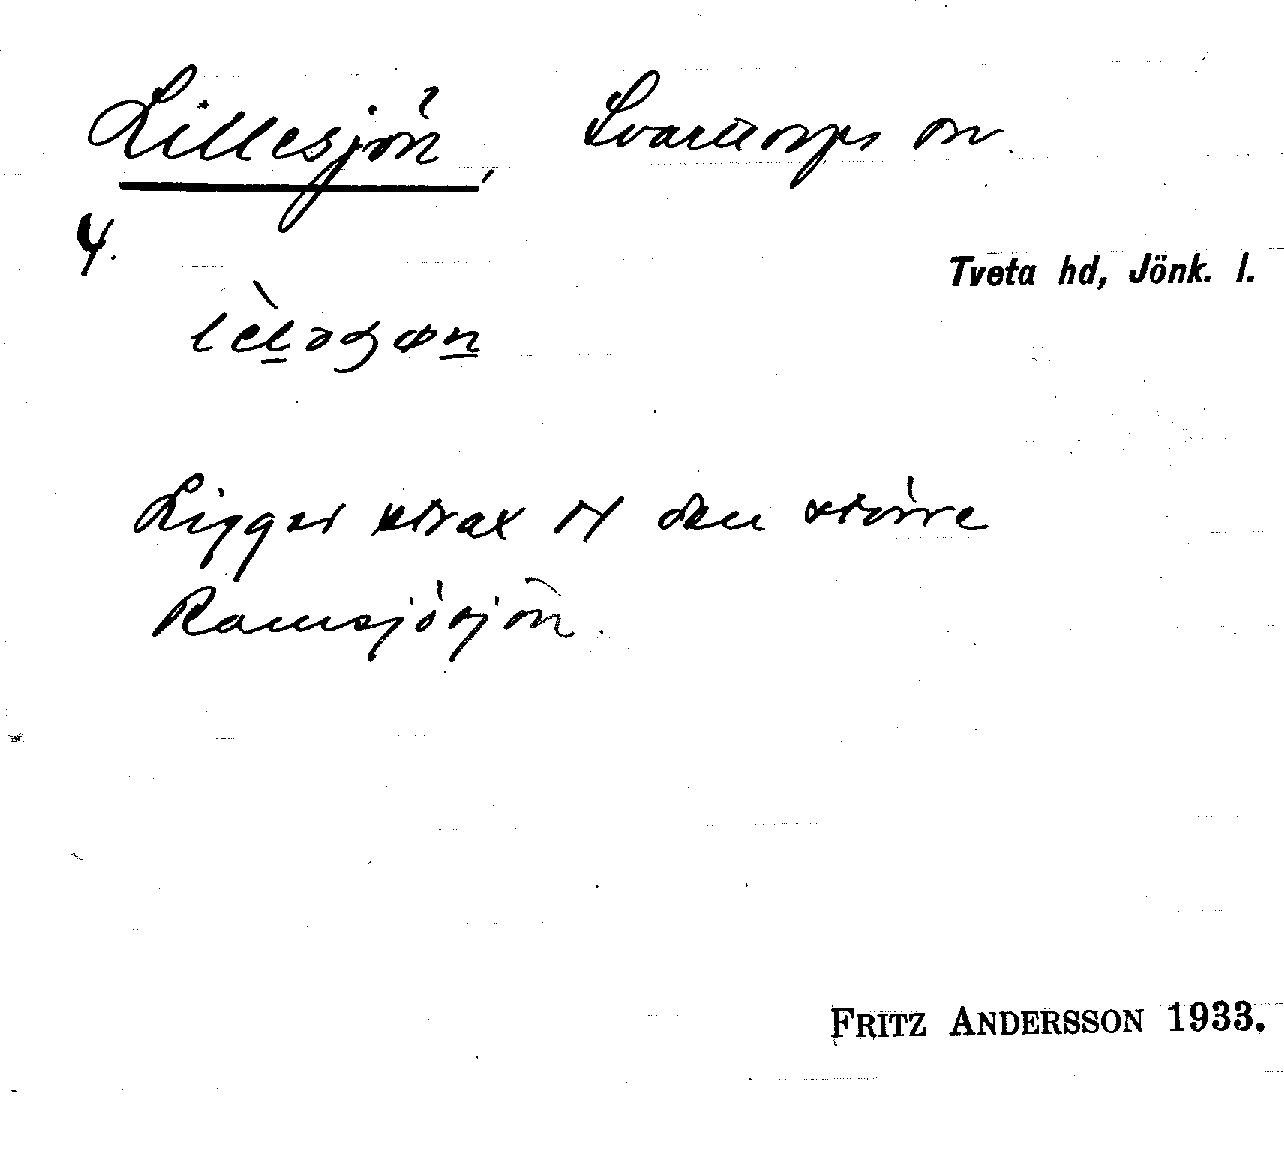 Lillesjön, Svarttorps sn.
4.
Tveta hd, Jönk. l.
Ligger strax N den större
Ramsjösjön.
FRITZ ANDERSSON 1933.